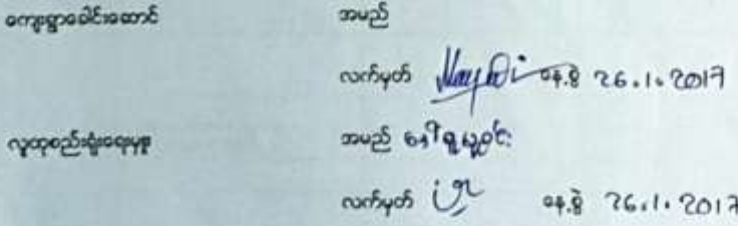 ကျေးရွာခေါင်းဆောင် အမည်
လက်မှတ် နေ့စွဲ 26.1.2017
လူထုစည်းရုံးရေးမှူး အမည်
လက်မှတ် နေ့စွဲ 26.1.2017